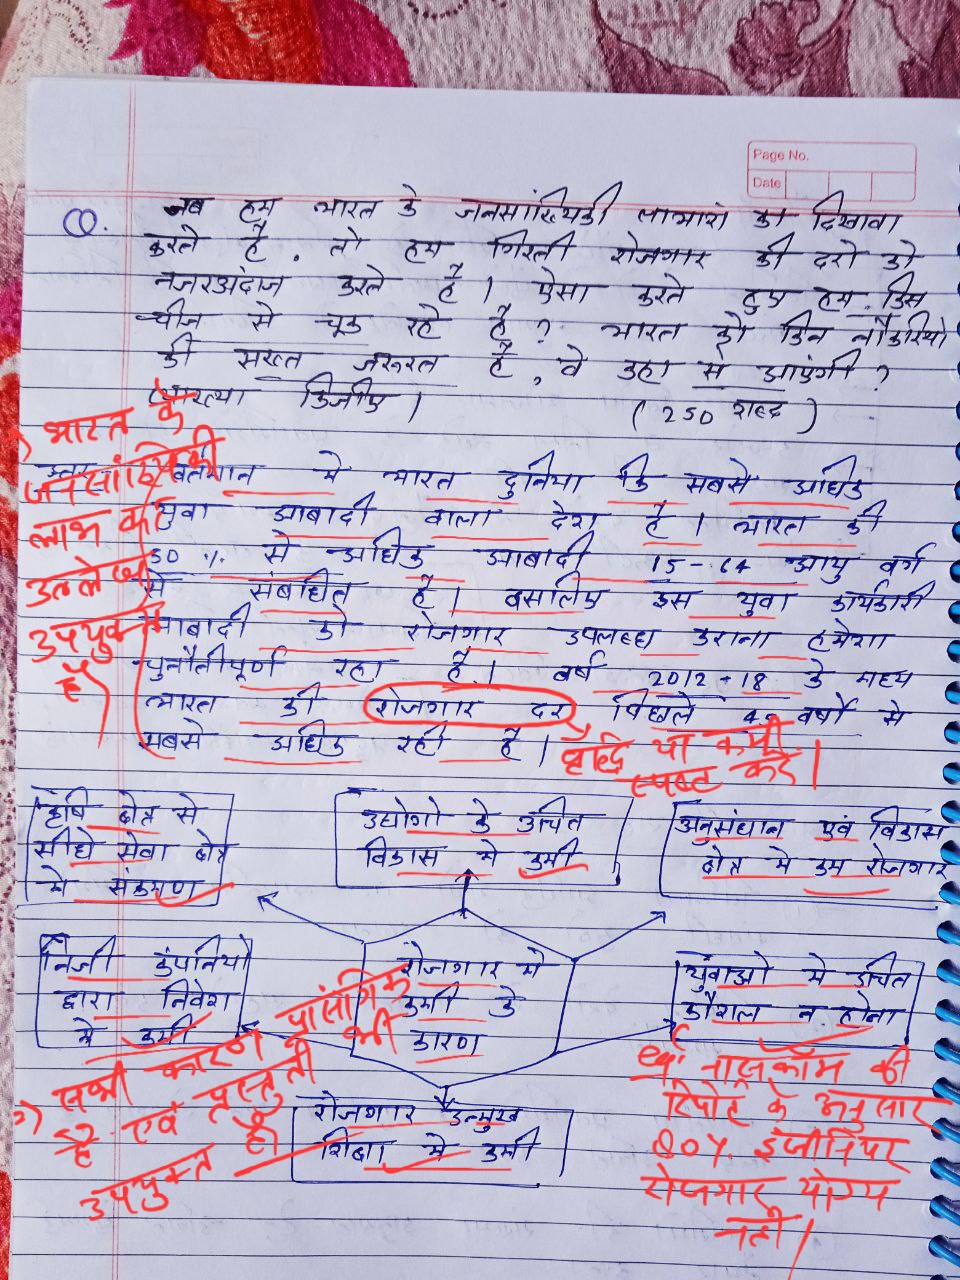 Page No.
Date
Q. जब हम भारत के जनसांख्यिकी लाभांश का दिखावा
करते हैं, तो हम गिरती रोजगार की दरो को
नजरअंदाज करते है। ऐसा करते हुए हम किस
चीज से चूक रहे हैं? भारत को जिन नौकरियो
की सख्त जरूरत है, वे कहा से आएंगी?
व्याख्या किजीए। (250 शब्द)
उत्तर वर्तमान मे भारत दुनिया कि सबसे अधिक
युवा आबादी वाला देश है। भारत की
50 % से अधिक आबादी 15-64 आयु वर्ग
से संबंधित है। इसलिए इस युवा कार्यकारी
आबादी को रोजगार उपलब्ध कराना हमेशा
चुनौतीपूर्ण रहा है। वर्ष 2012-18 के मध्य
भारत की रोजगार दर पिछले 40 वर्षों मे
सबसे अधिक रही है।
भारत के
जनसांख्यिकी
लाभ का
उल्लेख
उपयुक्त
है
वृद्धि या कमी
स्पष्ट करें।
कृषि क्षेत्र से
सीधे सेवा क्षेत्र
मे संक्रमण
उद्योगो के उचित
विकास मे कमी
अनुसंधान एवं विकास
क्षेत्र मे कम रोजगार
निजी कंपनियो
द्वारा निवेश
मे कमी
रोजगार मे
कमी के
कारण
युवाओ मे उचित
कौशल न होना
रोजगार उन्मुख
शिक्षा मे कमी
सभी कारण प्रासंगिक
है एवं प्रस्तुती भी
उपयुक्त है।
eg: नासकॉम की
रिपोर्ट के अनुसार
80% इंजीनियर
रोजगार योग्य
नही।